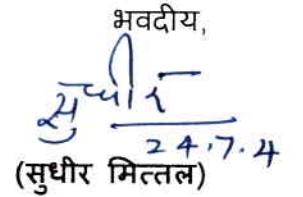 भवदीय,
सुधीर
24.7.4
(सुधीर मित्तल)